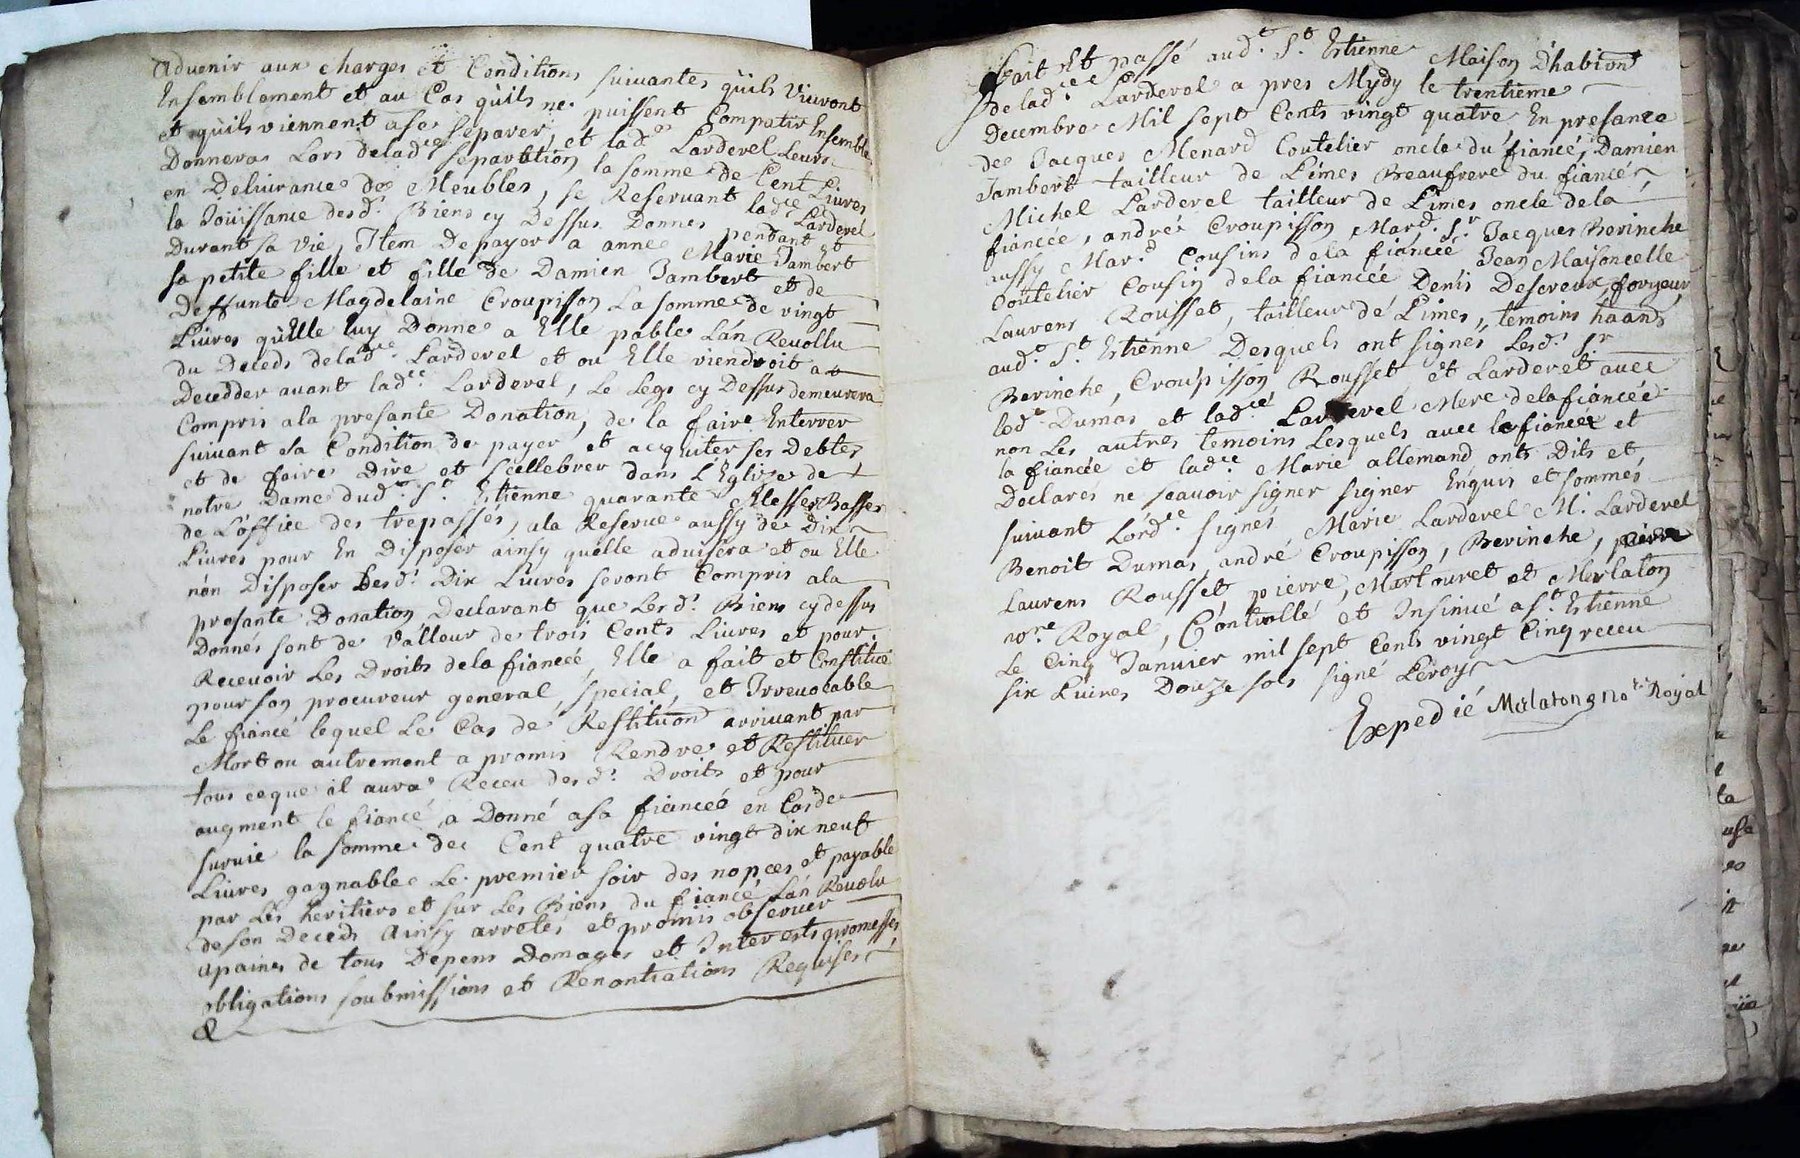 advenir aux charges et Conditions suivantes quils vivront
Ensemblement et au Cas quils ne puissent Compatir Ensemble
et quils viennent ase separer, et lad.e Larderel Leurs
Donnera Lors delad.e separation la somme de Cent Livres
en Delivrance de Meubles, se Reservant lad.ce Larderel
la Joüissance desd. Biens cy Dessus Donnes pendant et
Durant sa vie, Item De payer a anne Marie Jambert
sa petite fille et fille de Damien Jambert et de
Deffunte Magdelaine Croupisson La somme de vingt
Livres qu'Elle luy Donne a Elle pable Lán Revollu
du Deceds delad.ce Larderel et ou Elle viendroit a
Decedder avant lad.ce Larderel, Le Legs cy Dessus demeurera
Compris ala presante Donation, de la faire Enterrer
suivant sa Condition de payer et acquiter ses Debtes
et de faire Dire et Scellebrer dans L'Eglize de
notre Dame dud.t S.t Estienne quarante Messes Basses
de L'office des trepassés, ala Reserve aussy de Dix
Livres pour En Disposer ainsy quelle advisera et ou Elle
nén Disposer Lesd. Dix Livres seront Compris ala
presante Donation Declarant que Lesd. Biens cy dessus
Donnés sont de valleur de trois Cents Livres et pour
Recevoir Les Droits dela fiancée, Elle a fait et Constitué
pour son procureur general special, et Irrevocable
Le fiancé lequel Le Cas de Restituon arrivant par
Mort ou autrement a promis Rendre et Restituer
tous ce que il aura Receu desd. Droits et pour
augment le fiancé a Donné asa fiancéé en Cas de
survie la somme de Cent quatre vingt dix neuf
Livres gagnable Le premier soir des nopces et payable
par Les heritiers et sur Les Biens du fiancé Lán Revolu
de son Deceds Ainsy arretés et promis observer
apaines de tous Depens Domages et Interests promesses
obligations soubmissions et Renontiations Requises
&
Fait Et passé aud.t S.t Estienne Maison D'habiont
de lad.ce Larderol a pres Mydy le trentieme
Decembre Mil sept Cents vingt quatre En presance
de Jacques Menard Coutelier oncle du fiancé, Damien
Jambert tailleur de Limes Beaufrere du fiancé,
Michel Larderel tailleur de Limes oncle dela
fiancéé, andré Croupisson Mard. S.r Jacques Berinche
aussy Mar.d Cousins dela fiancéé Jean Maisoncelle
Coutelier Cousin dela fiancéé Denis Descreux forgeur
Laurens Rousset, tailleur dé Limes, temoins haants
aud.t S.t Estienne Desquels ont signés Lesd. S.r
Berinche, Croupisson Rousset et Larderet avec
led.t Dumas et lad.ce Larderel Mere dela fiancéé
non Les autres temoins Lesquels avec le fiancé et
la fiancée et lad.ce Marie allemand onts Dits et
Declarés ne scavoir signer signer Enquis et sommés
suivant Lórd.ce signés Marie Larderel M. Larderel
Benoit Dumas, andré Croupisson, Berinche, pierre
Laurens Rousset pierre, Martouret et Merlaton
no.re Royal, Controllé et Insinué a S.t Estienne
Le Cinq Janvier mil sept Cents vingt Cinq receu
six Livres Douze sols signé Leroy
Expedié Merlaton no.re Royal